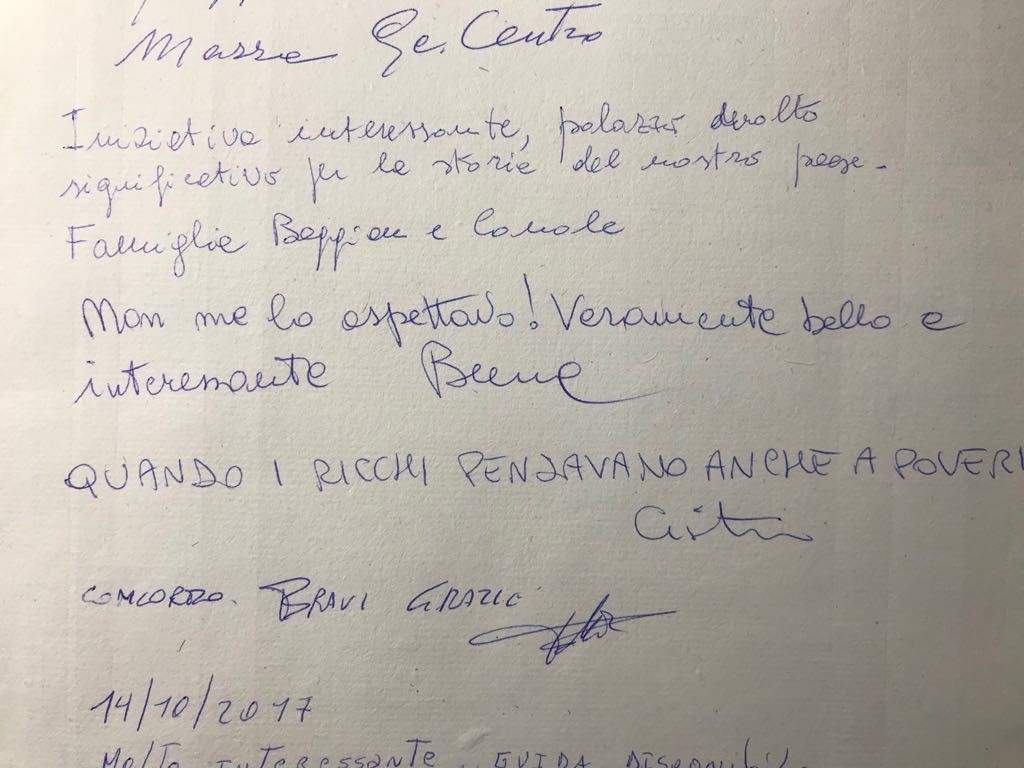 Iniziativa interessante, palazzo
significativo per la storia del nostro paese.
Famiglia Beppian e
Non me lo aspettavo! Veramente bello e
interessante
QUANDO I RICCHI PENSAVANO ANCHE A POVERI
CONCORDO. BRAVI GRAZIE
14/10/2017
MOLTO INTERESSANTE. GUIDA DISPONIBILE